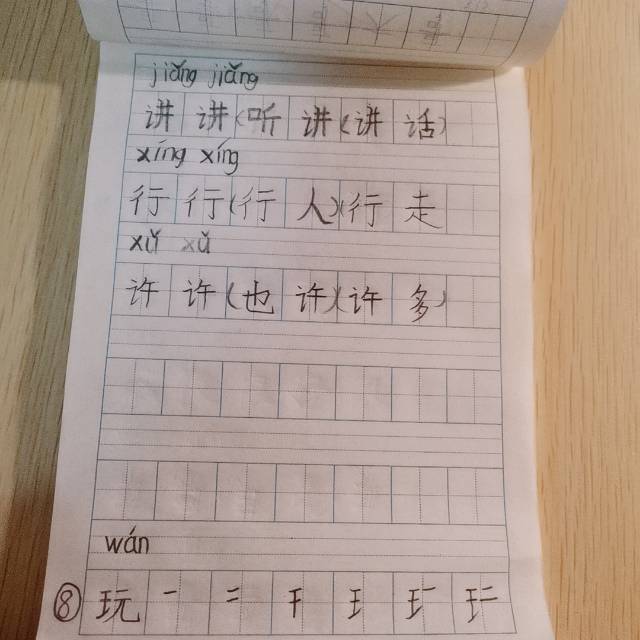 jiǎng jiǎng
讲讲(听讲)(讲话)
xíng xíng
行行(行人)(行走
xǔ xǔ
许许(也许)(许多)
wán
⑧玩一二